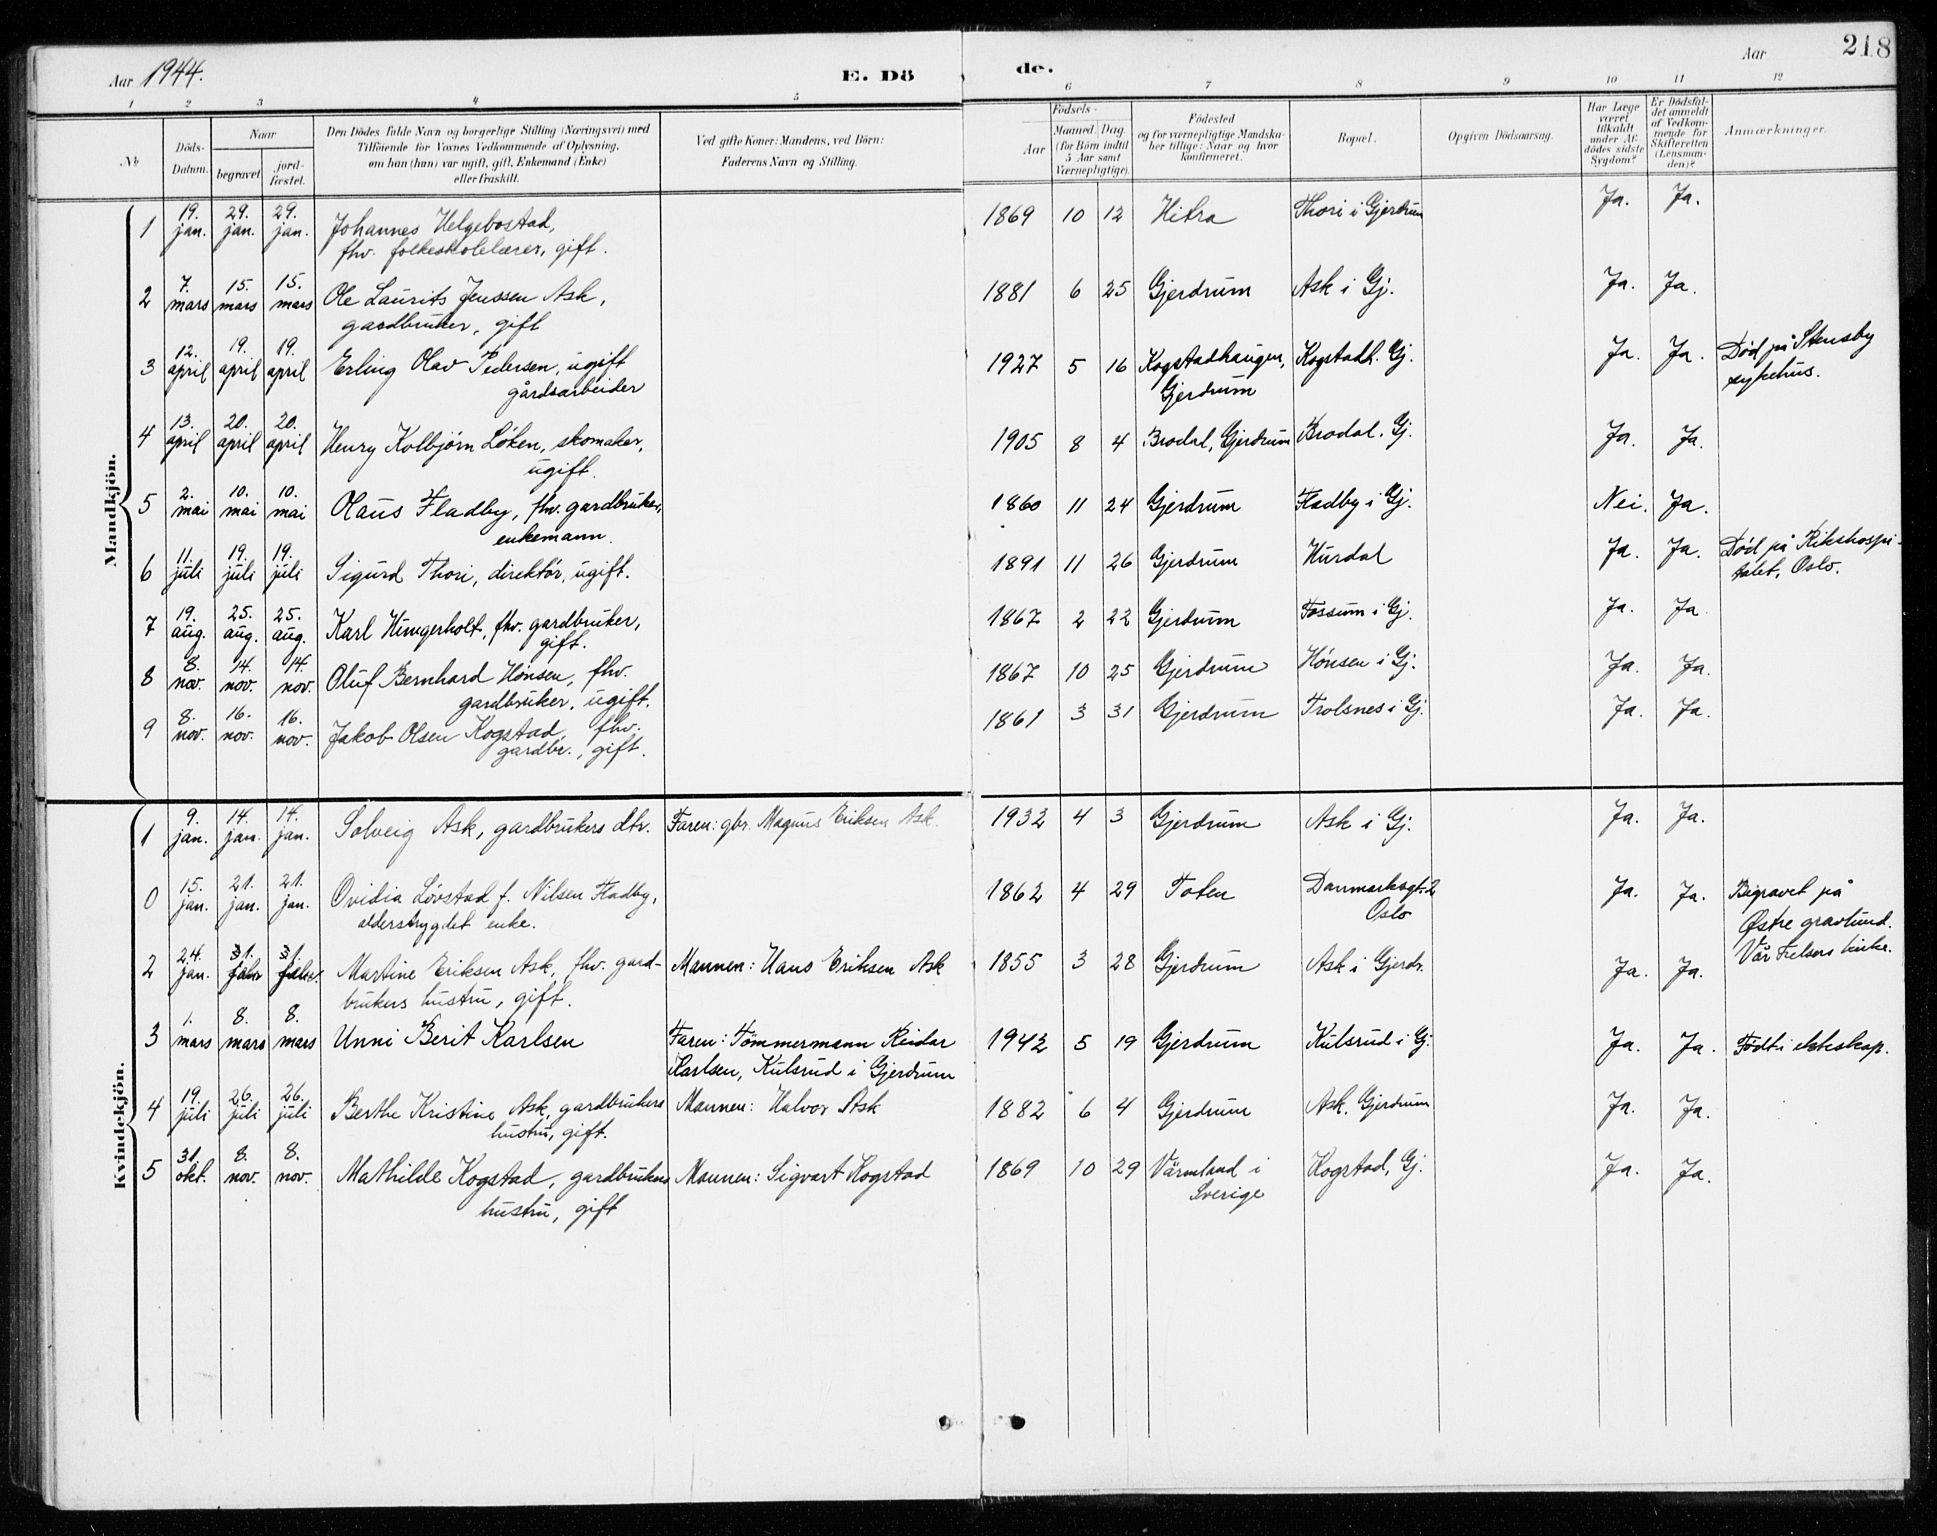 Aar 1944.
E. Dö
de.
Aar
218
1 2 3 4 5
6 7 8 9 10 11 12
No
Döds-Datum.
Naar
begravet
jord-fæstet.
Den Dödes fulde Navn og borgerlige Stilling (Næringsvei) med
Tilföiende for Voxnes Vedkommende af Oplysning,
om han (hun) var ugift, gift, Enkemand (Enke)
eller fraskilt.
Ved gifte Koner: Mandens, ved Börn:
Faderens Navn og Stilling.
Födsels-
Aar
Maaned. Dag.
(for Börn indtil
5 Aar samt
Værnepligtige).
Födested
og for værnepligtige Mandska-
ber tillige: Naar og hvor
konfirmeret.
Bopæl.
Opgiven Dödsaarsag.
Har Læge
været
tilkaldt
under Af-
dödes sidste
Sygdom?
Er Dödsfal-
det anmeldt
af Vedkom-
mende for
Skifteretten
(Lensman-
den)?
Anmærkninger.
Mandkjön.
1 19. jan. 29. jan. 29. jan. Johannes Helgebostad, 1869 10 12 Hitra Thori i Gjerdrum Ja. Ja.
fhv. folkeskolelærer, gift.
2 7. mars 15. mars 15. mars Ole Laurits Jenssen Ask, 1881 6 25 Gjerdrum Ask i Gj. Ja. Ja.
gardbruker, gift
3 12. april 19. april 19. april Erling Olav Pedersen, ugift 1927 5 16 Kogstadhaugen, Kogstadh. Gj. Ja. Ja. Død på Stensby
gårdsarbeider Gjerdrum sykehus.
4 13. april 20. april 20. april Henry Kolbjørn Løken, skomaker, 1905 8 4 Brodal, Gjerdrum Brodal. Gj. Ja. Ja.
ugift.
5 2. mai 10. mai 10. mai Olaus Fladby, fhv. gardbruker, 1860 11 24 Gjerdrum Fladby i Gj. Nei. Ja.
enkemann.
6 11. juli 19. juli 19. juli Sigurd Thori, direktør, ugift. 1891 11 26 Gjerdrum Hurdal Ja. Ja. Død på Rikshospi-
talet, Oslo.
7 19. aug. 25. aug. 25. aug. Karl Hungerholt, fhv. gardbruker, 1867 2 22 Gjerdrum Fossum i Gj. Ja. Ja
gift.
8 8. nov. 14. nov. 14. nov. Oluf Bernhard Hønsen, fhv. 1867 10 25 Gjerdrum Hønsen i Gj. Ja. Ja.
gardbruker, ugift.
9 8. nov. 16. nov. 16. nov. Jakob Olsen Kogstad, fhv. 1861 3 31 Gjerdrum Trolsnes i Gj. Ja. Ja.
gardbr., gift.
Kvindekjön.
1 9. jan. 14. jan. 14. jan. Solveig Ask, gardbrukers dtr. Faren: gbr. Magnus Eriksen Ask. 1932 4 3 Gjerdrum Ask i Gj. Ja. Ja.
0 15. jan. 21. jan. 21. jan. Ovidia Løvstad f. Nilsen Fladby, 1862 4 29 Toten Danmarksgt. 2 Ja. Ja. Begravet på
alderstrygdet enke. Oslo Østre gravlund.
Vår Frelsers kirke.
2 24. jan. 31. 31. Martine Eriksen Ask, fhv. gard- Mannen: Hans Eriksen Ask 1855 3 28 Gjerdrum Ask i Gjerdr. Ja. Ja.
brukers hustru, gift.
3 1. mars 8. mars 8. mars Unni Berit Karlsen Faren: Tømmermann Reidar 1942 5 19 Gjerdrum Kulsrud i Gj. Ja. Ja. Født i ekteskap.
Karlsen, Kulsrud i Gjerdrum
4 19. juli 26. juli 26. juli Berthe Kristine Ask, gardbrukers Mannen: Halvor Ask 1882 6 4 Gjerdrum Ask. Gjerdrum Ja. Ja.
hustru, gift.
5 31. okt. 8. nov. 8. nov. Mathilde Kogstad, gardbrukers Mannen: Sigvart Kogstad 1869 10 29 Värmland i Kogstad, Gj. Ja. Ja.
hustru, gift Sverige